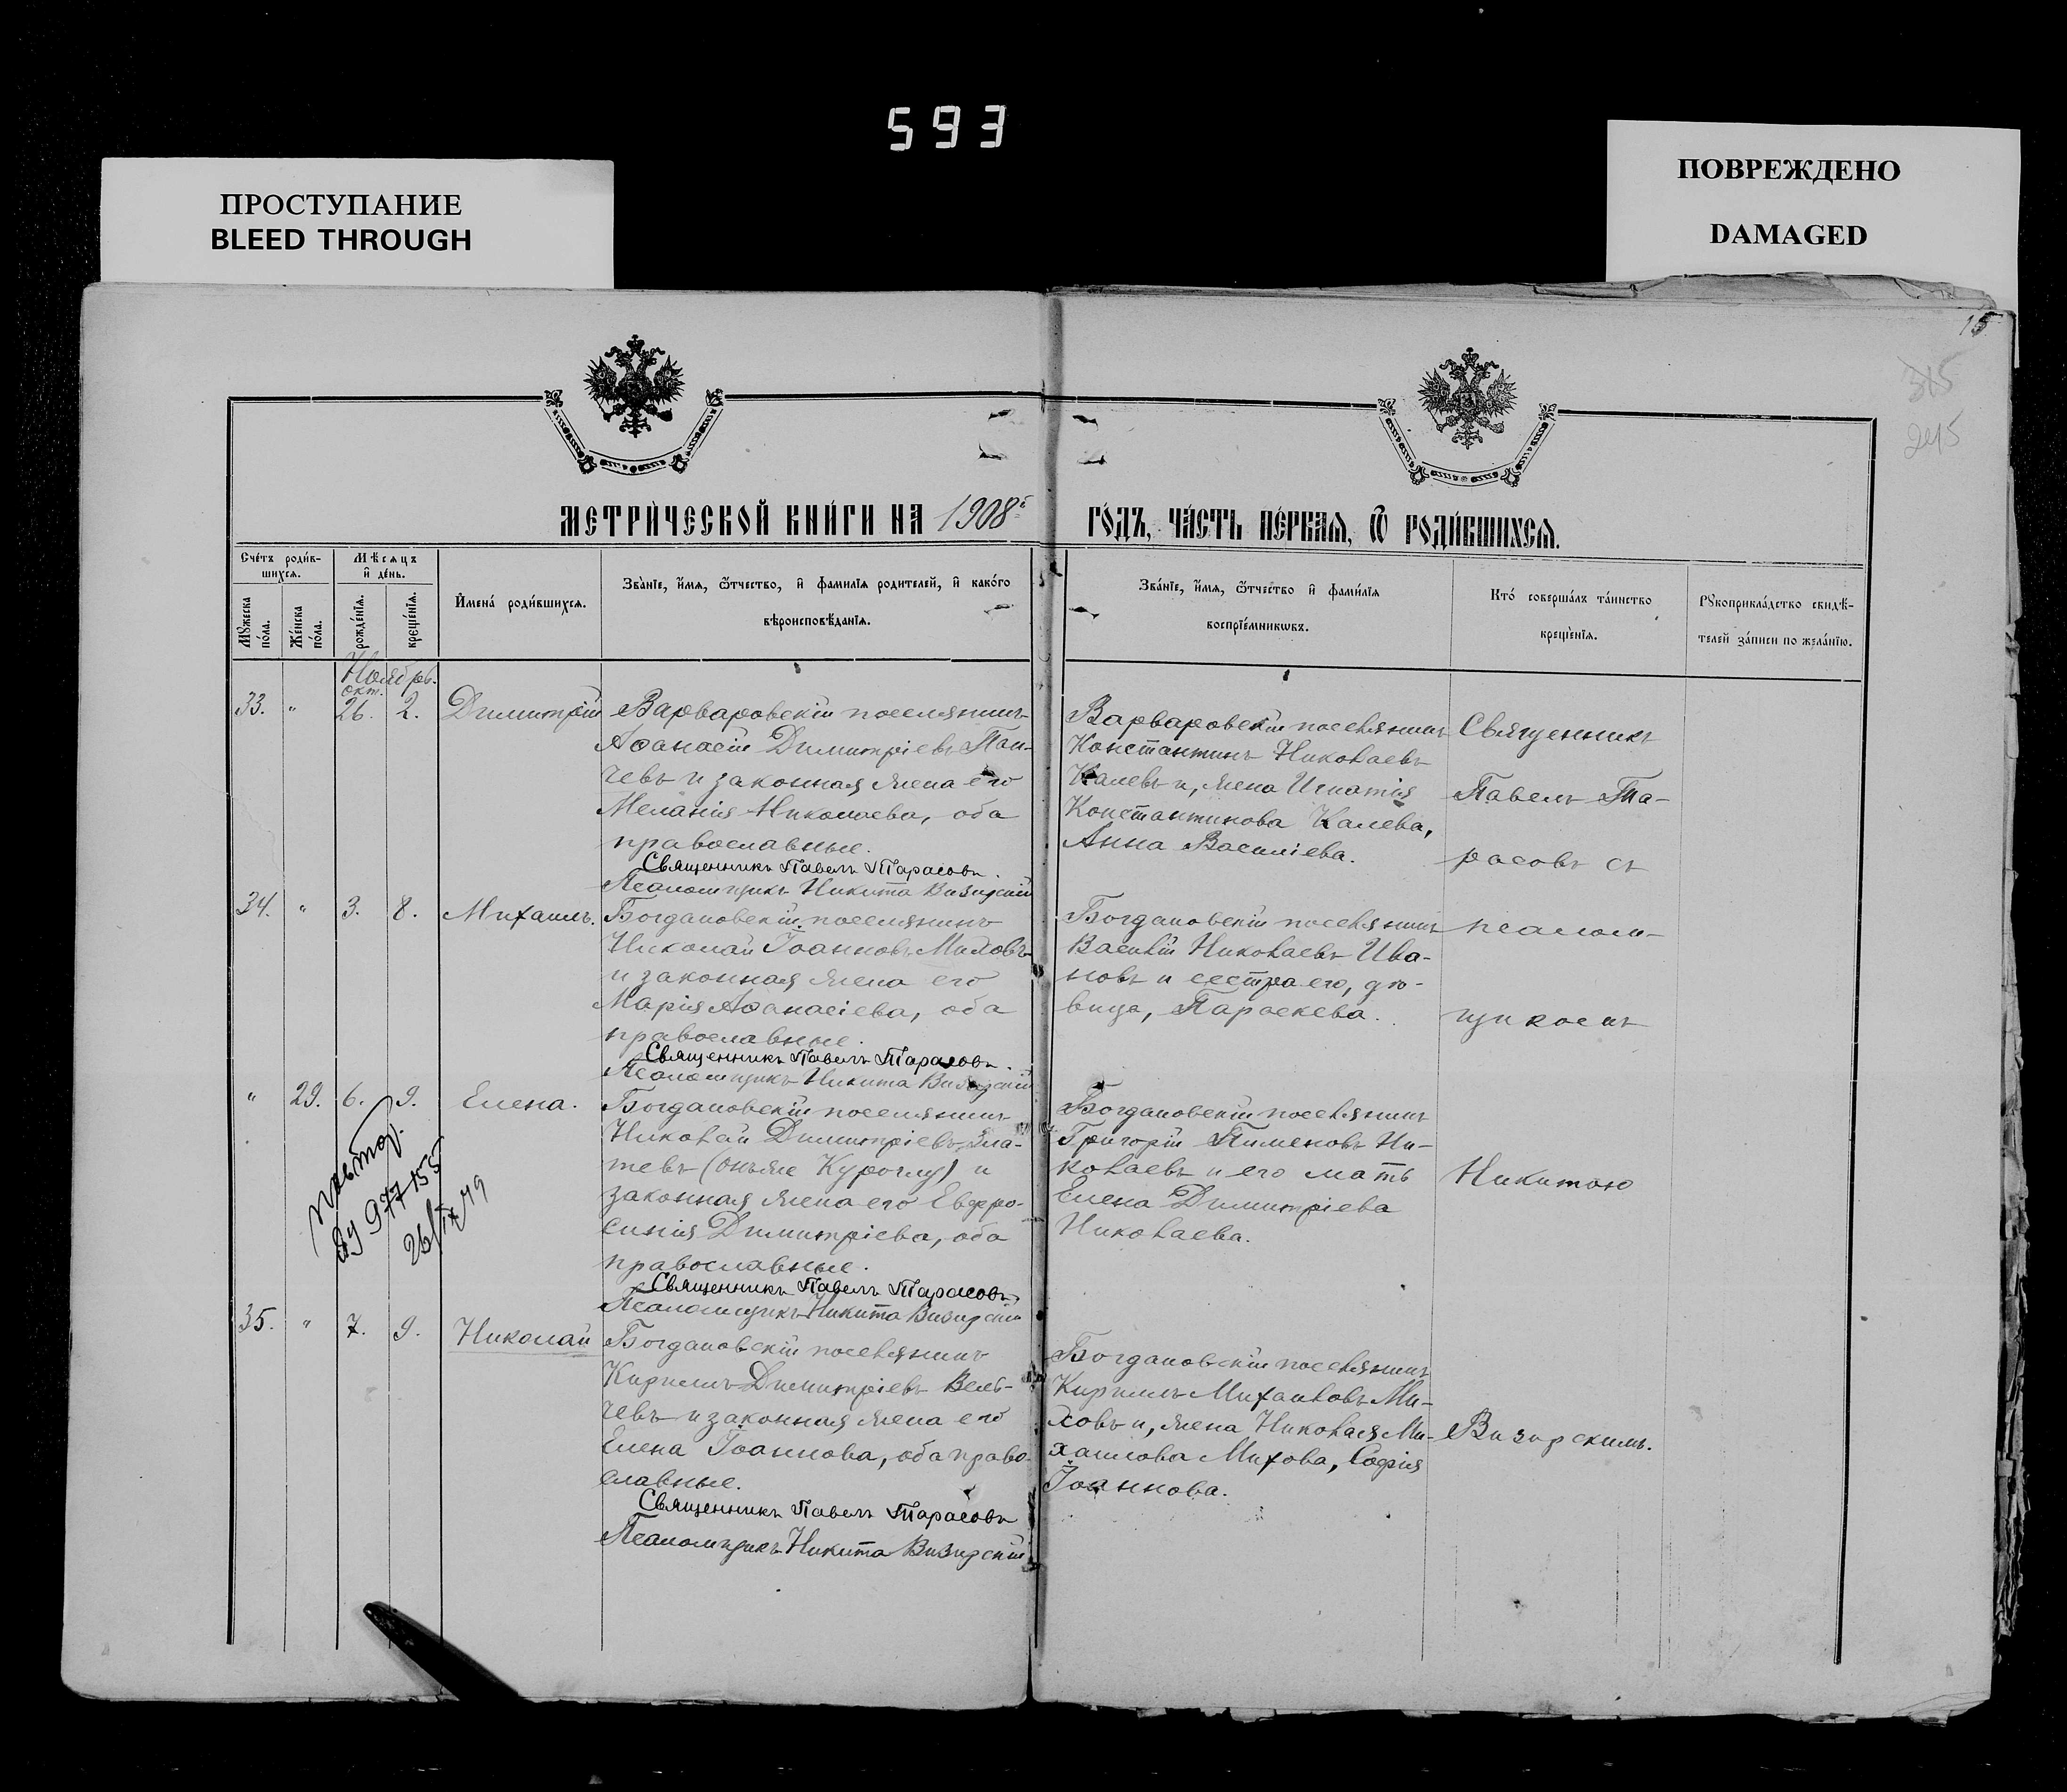 593
ПРОСТУПАНИЕ
BLEED THROUGH
ПОВРЕЖДЕНО
DAMAGED
15
315
245
МЕТРИ́ЧЕСКОЙ КНИ́ГИ НА 1908й
ГО́ДЪ, ЧА́СТЬ ПЕ́РВАЯ, Ѿ РОДИ́ВШИХСЯ.
Сче́тъ роди́в-
шихся.
Мѣсяцъ
и҆ де́нь.
Мꙋжеска по́ла.
Же́нска по́ла.
рожде́нїѧ.
креще́нїѧ.
И҆мена̀ роди́вшихся.
Зва́нїе, и҆́мѧ, ѻ҆́тчество, и҆ фамилїѧ родителей, и҆ како́го
вѣроисповѣ́данїѧ.
Зва́нїе, и҆́мѧ, ѻ҆́тчество и҆ фами́лїѧ
воспрїе́мникѡвъ.
Кто̀ соверша́лъ та́инство
креще́нїѧ.
Рꙋкоприкла́дство свидѣ́-
телей за́писи по жела́нїю.
Ноябрь.
окт.
33. " 26. 2. Димитрій
Варваровскій поселянинъ
Аѳанасій Димитріевъ Пан-
чевъ и законная жена его
Меланія Николаева, оба
православные.
Священникъ Павелъ Тарасовъ.
Псаломщикъ Никита Визирскій
Варваровскій поселянинъ
Константинъ Николаевъ
Калевъ и, жена Игнатія
Константинова Калева,
Анна Василіева.
34. " 3. 8. Михаилъ.
Богдановскій поселянинъ
Николай Іоанновъ Миховъ
и законная жена его
Марія Аѳанасіева, оба
православные.
Священникъ Павелъ Тарасовъ.
Псаломщикъ Никита Визирскій
Богдановскій поселянинъ
Василій Николаевъ Ива-
новъ и сестра его, дѣ-
вица, Параскева.
" 29. 6. 9. Елена.
Богдановскій поселянинъ
Николай Димитріевъ Зла-
тевъ (онъ же Куроглу) и
законная жена его Евфро-
синія Димитріева, оба
православные.
Священникъ Павелъ Тарасовъ.
Псаломщикъ Никита Визирскій
Богдановскій поселянинъ
Григорій Пименовъ Ни-
колаевъ и его мать
Елена Димитріева
Николаева.
977155
35. " 7. 9. Николай
Богдановскій поселянинъ
Кириллъ Димитріевъ Вель-
чевъ и законная жена его
Елена Іоаннова, оба право-
славные.
Священникъ Павелъ Тарасовъ
Псаломщикъ Никита Визирскій
Богдановскій поселянинъ
Кириллъ Михаиловъ Ми-
ховъ и, жена Николая Ми-
хаилова Михова, Софія
Іоаннова.
Священникъ
Павелъ Та-
расовъ съ
псалом-
щикомъ
Никитою
Визирскимъ.